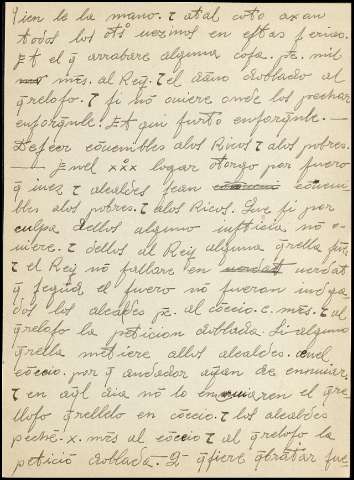 Tien le la mano. τ atal coto axan
todos los otºs uezinos en estas ferias.
Et el q̄ arrabare alguna cosa. pe. mil
mrs. al Rey. τ el daño doblado al
q̄reloso. τ si nō ouiere onde los pechar
enforq̄nle. Et qui furto enforq̄nle. —
De seer cōuenibles alos Ricos τ alos pobres.
— Enel xxx logar otorgo por fuero
q̄ iuez τ alcaldes sean cōueni
bles alos pobres. τ alos Ricos. Que si por
culpa dellos alguno iusticia nō o-
uiere. τ dellos al Rey alguna q̄rella
τ el Rey nō fallare en uerdat
q̄ segūd el fuero nō fueron iudga-
dos los alcaldes pe. al cōceio. c. mrs. τ al
q̄reloso la peticion doblada. Si alguno
q̄rella metiere allos alcaldes. enel
cōceio. por q̄ andador ayan de enuiar.
τ en aql̄ dia nō lo enuiaren el q̄re
lloso q̄rellelo en cōceio. τ los alcaldes
pechē. x. mrs al cōceio τ al q̄reloso la
peticiō doblada. Q̄ q̄siere q̄bratar fue